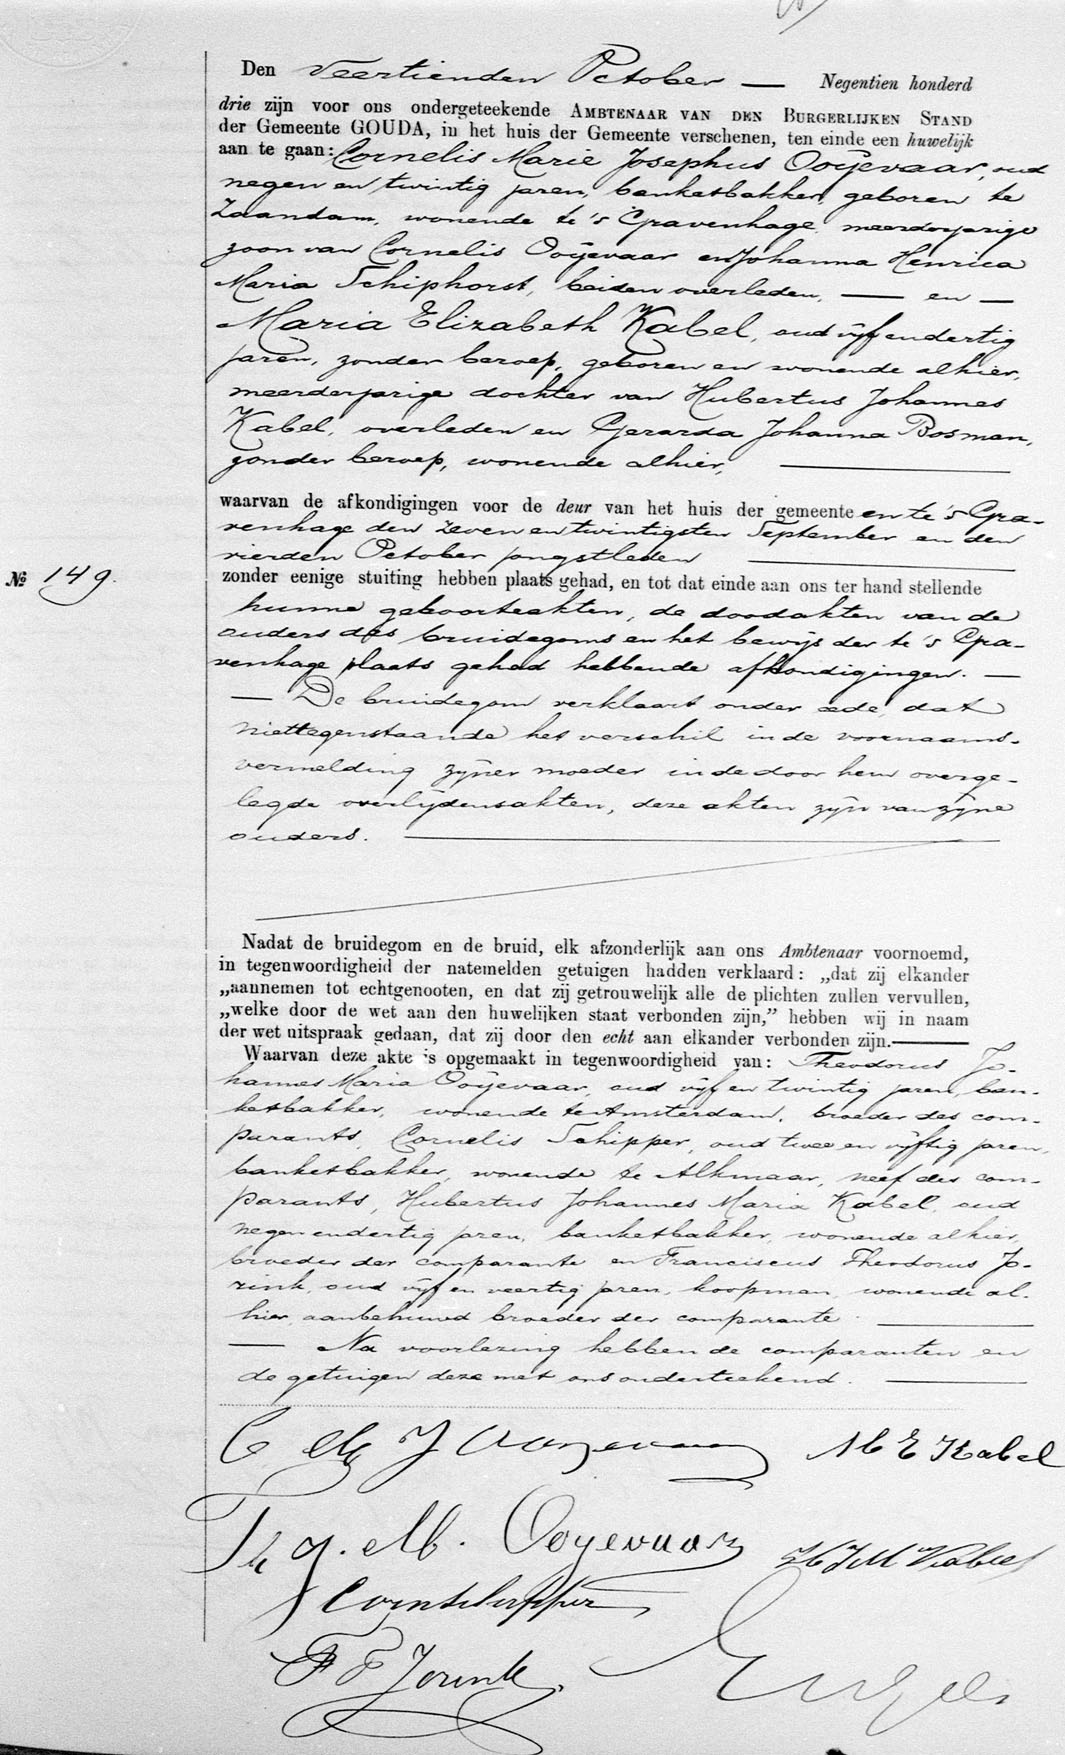 Den Veertienden October — Negentien honderd
drie zijn voor ons ondergeteekende AMBTENAAR VAN DEN BURGERLIJKEN STAND
der Gemeente GOUDA, in het huis der Gemeente verschenen, ten einde een huwelijk
aan te gaan: Cornelis Marie Josephus Ooijevaar, oud
negen en twintig jaren, banketbakker, geboren te
Zaandam, wonende te 's Gravenhage, meerderjarige
zoon van Cornelis Ooijevaar en Johanna Henrica
Maria Schiphorst, beiden overleden, — en —
Maria Elizabeth Kabel, oud vijf en dertig
jaren, zonder beroep, geboren en wonende alhier,
meerderjarige dochter van Hubertus Johannes
Kabel, overleden en Gerarda Johanna Bosman,
zonder beroep, wonende alhier,
waarvan de afkondigingen voor de deur van het huis der gemeente en te 's Gra-
venhage den zeven en twintigsten September en den
vierden October jongstleden
№ 149.
zonder eenige stuiting hebben plaats gehad, en tot dat einde aan ons ter hand stellende
hunne geboorteakten, de doodakten van de
ouders des bruidegoms en het bewijs der te 's Gra-
venhage plaats gehad hebbende afkondigingen. —
— De bruidegom verklaart onder eede, dat
niettegenstaande het verschil in de voornaams-
vermelding zijner moeder in de door hem overge-
legde overlijdensakten, deze akten zijn van zijne
ouders.
Nadat de bruidegom en de bruid, elk afzonderlijk aan ons Ambtenaar voornoemd,
in tegenwoordigheid der natemelden getuigen hadden verklaard: „dat zij elkander
„aannemen tot echtgenooten, en dat zij getrouwelijk alle de plichten zullen vervullen,
„welke door de wet aan den huwelijken staat verbonden zijn,” hebben wij in naam
der wet uitspraak gedaan, dat zij door den echt aan elkander verbonden zijn.—
Waarvan deze akte is opgemaakt in tegenwoordigheid van: Theodorus Jo-
hannes Maria Ooijevaar, oud vijf en twintig jaren, ban-
ketbakker, wonende te Amsterdam, broeder des com-
parants, Cornelis Schipper, oud twee en vijftig jaren,
banketbakker, wonende te Alkmaar, neef des com-
parants, Hubertus Johannes Maria Kabel, oud
negen en dertig jaren, banketbakker, wonende alhier,
broeder der comparante en Franciscus Theodorus Jo-
rink, oud vijf en veertig jaren, koopman, wonende al-
hier, aanbehuwd broeder der comparante.
— Na voorlezing hebben de comparanten en
de getuigen deze met ons onderteekend.
C M J Ooyevaar M E Kabel
Th. J. M. Ooyevaar H J M Kabel
Corn Schipper
F T Jorink